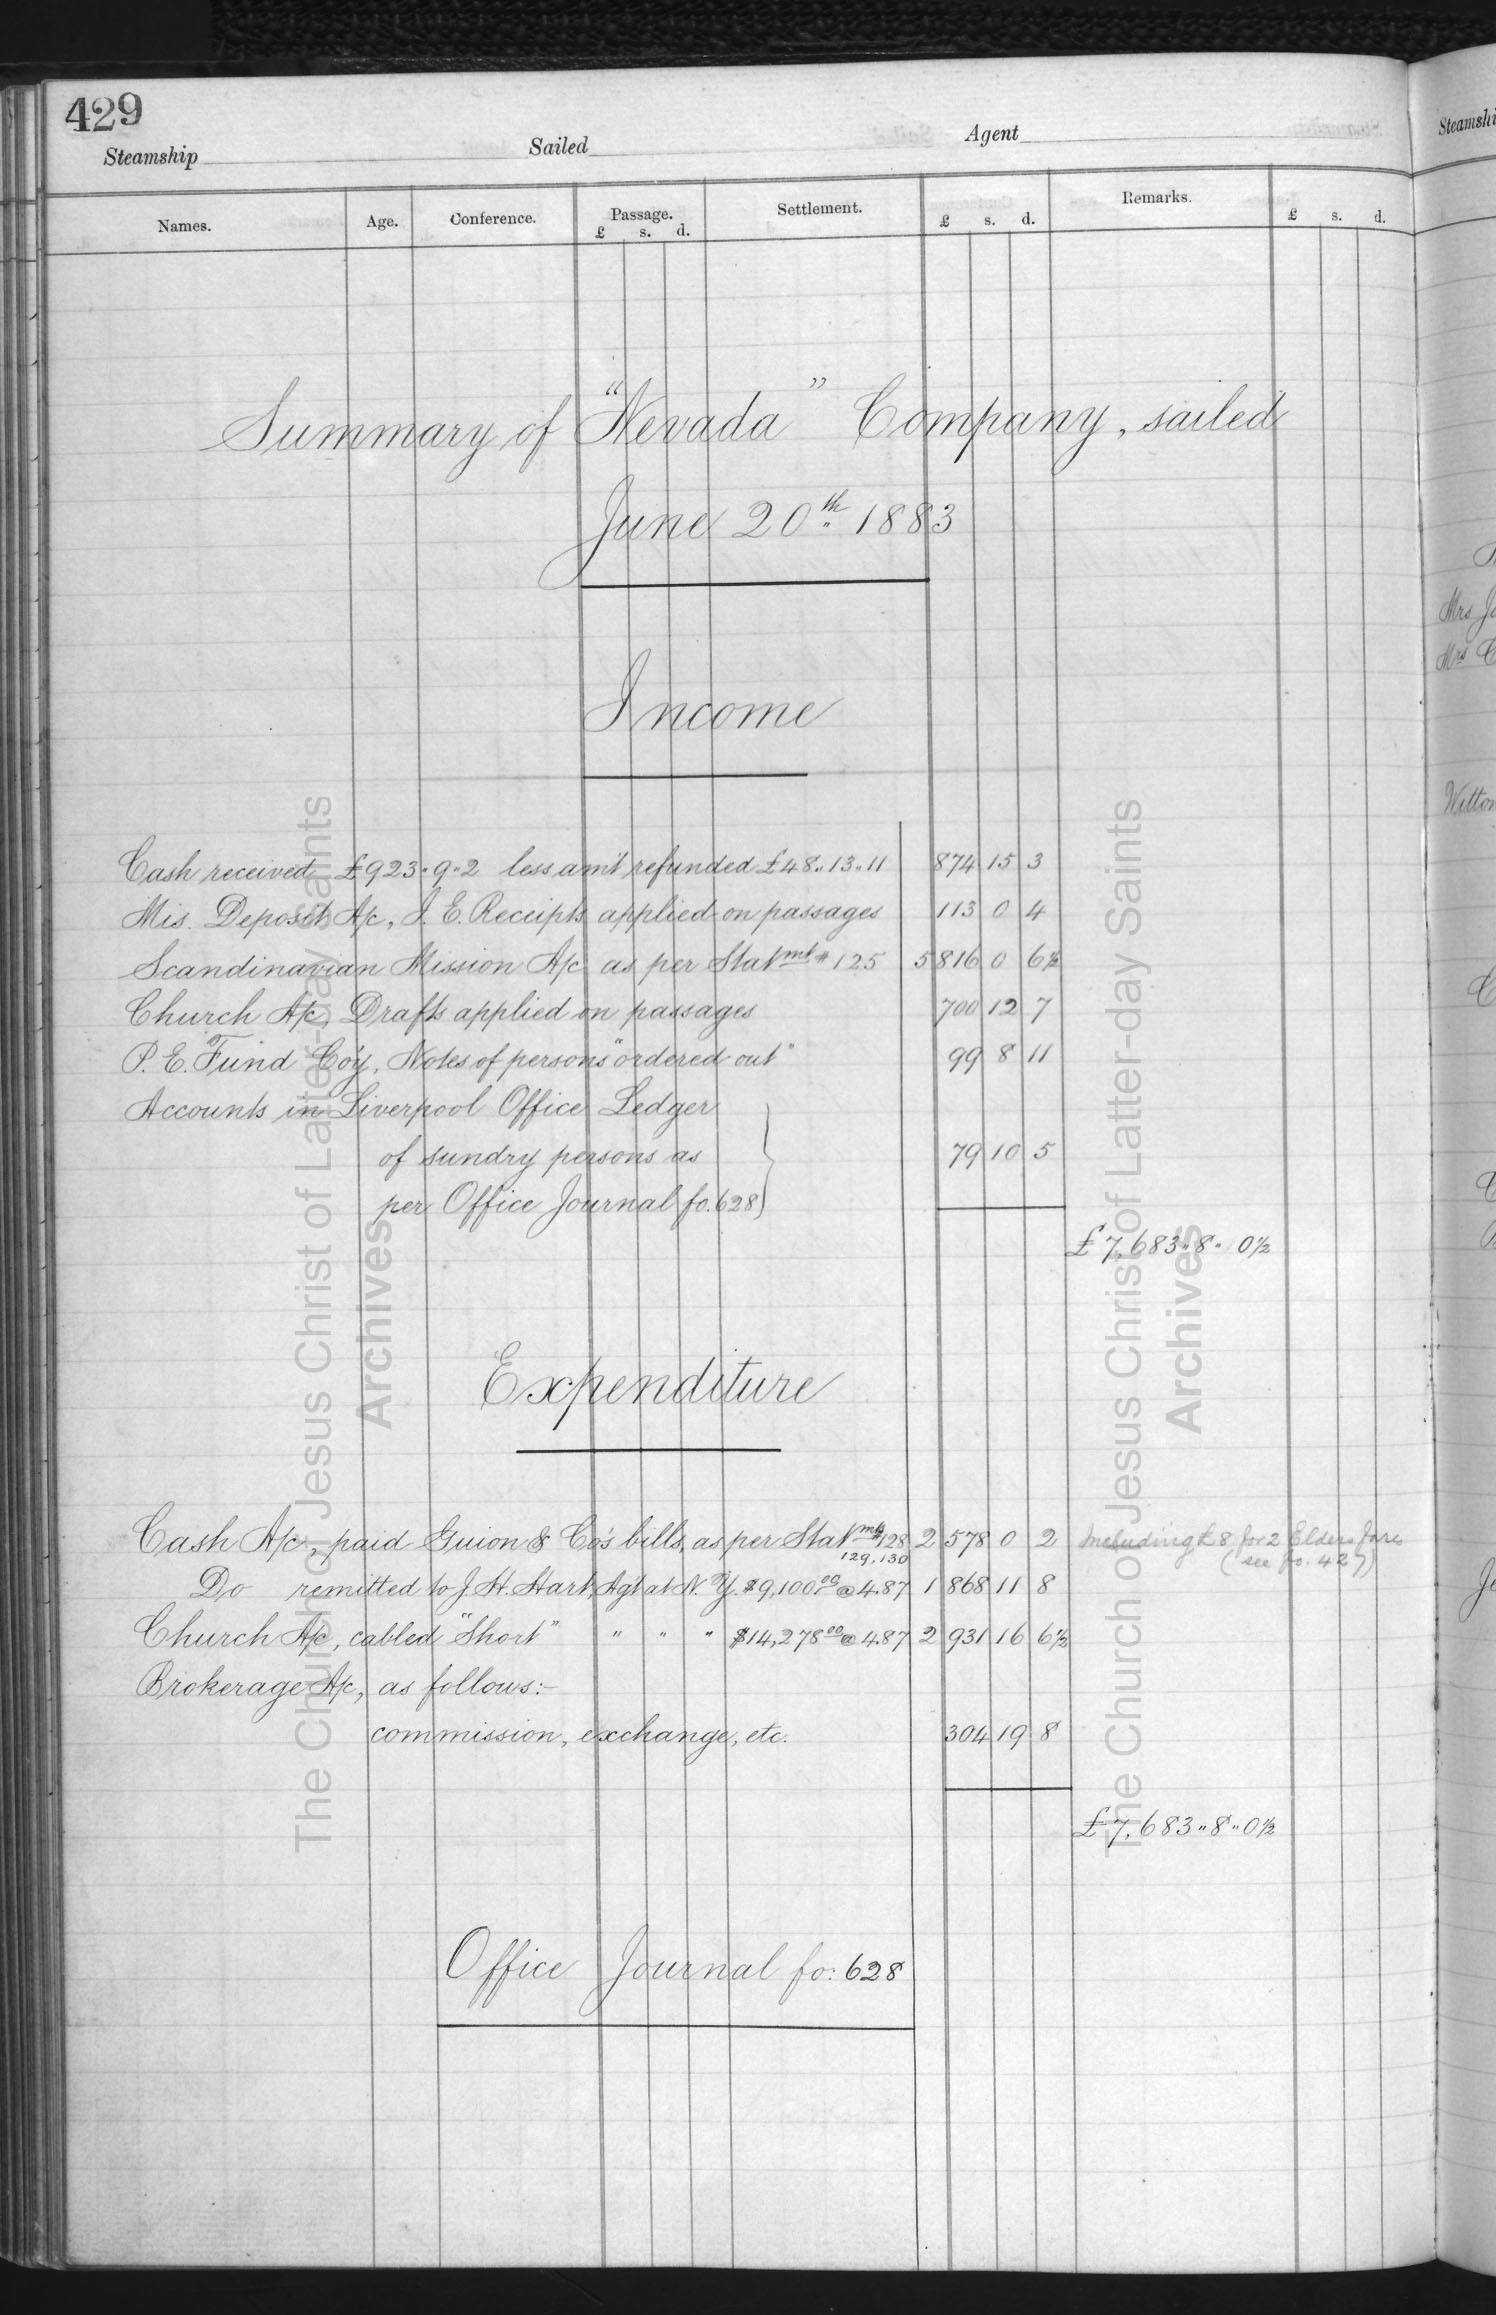 429
Steamship Sailed Agent
Names. Age. Conference. Passage. £ s. d. Settlement. £ s. d. Remarks. £ s. d.
Summary of "Nevada" Company, sailed
June 20th 1883
Income
Cash received £923"9"2 less am't refunded £48"13"11 874 15 3
Mis. Deposit A/c, I. E. Receipts applied on passages 113 0 4
Scandinavian Mission A/c as per Statmt # 125 5 816 0 6½
Church A/c, Drafts applied on passages 700 12 7
P. E. Fund Co'y, Notes of persons "ordered out" 99 8 11
Accounts in Liverpool Office Ledger
of sundry persons as 79 10 5
per Office Journal fo. 628
£7,683"8"0½
Expenditure
Cash A/c, paid Guion & Co's bills, as per Statmts #128 2 578 0 2 Including £8 for 2 Elders fares
129, 130 (see fo. 427)
Do remitted to J. H. Hart, Agt at N. Y. $9,100.00 @ 4.87 1 868 11 8
Church A/c, cabled "Short" " " " $14,278.00 @ 4.87 2 931 16 6½
Brokerage A/c, as follows:-
commission, exchange, etc. 304 19 8
£7,683"8"0½
Office Journal fo: 628
The Church of Jesus Christ of Latter-day Saints
Archives
The Church of Jesus Christ of Latter-day Saints
Archives
Mrs
Mrs